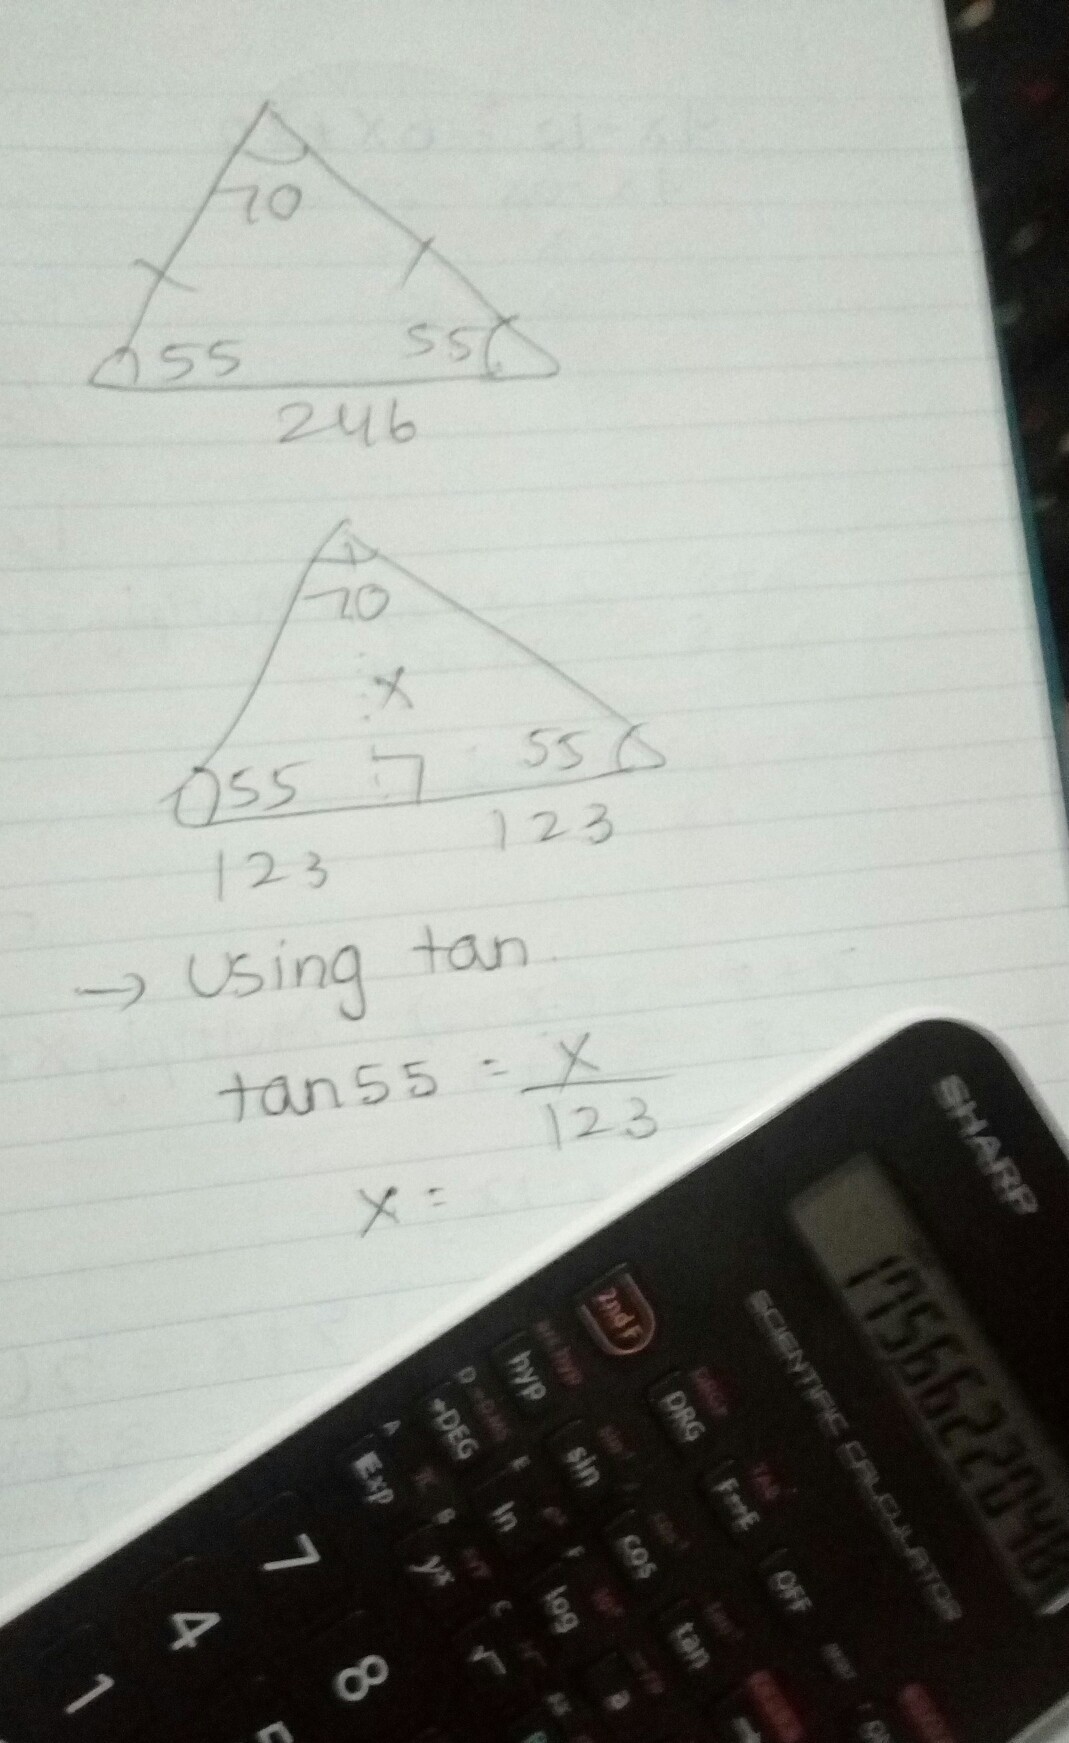 70
55 55
246
70
x
55 55
123 123
→ Using tan
tan55 = x
123
x =
SHARP
SCIENTIFIC CALCULATOR
2nd F
hyp
DRG
→DEG
sin
F↔E
Exp
ln
cos
OFF
yx
log
tan
7
4
8
1